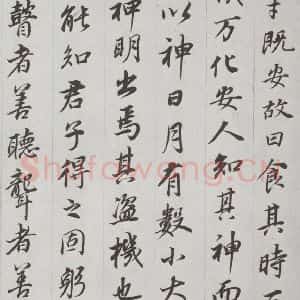 既安故曰食其時
万化安人知其神而
以神日月有數小大
神明出焉其盜機也
能知君子得之固躬
瞽者善聽聾者善
Shufawang.cn